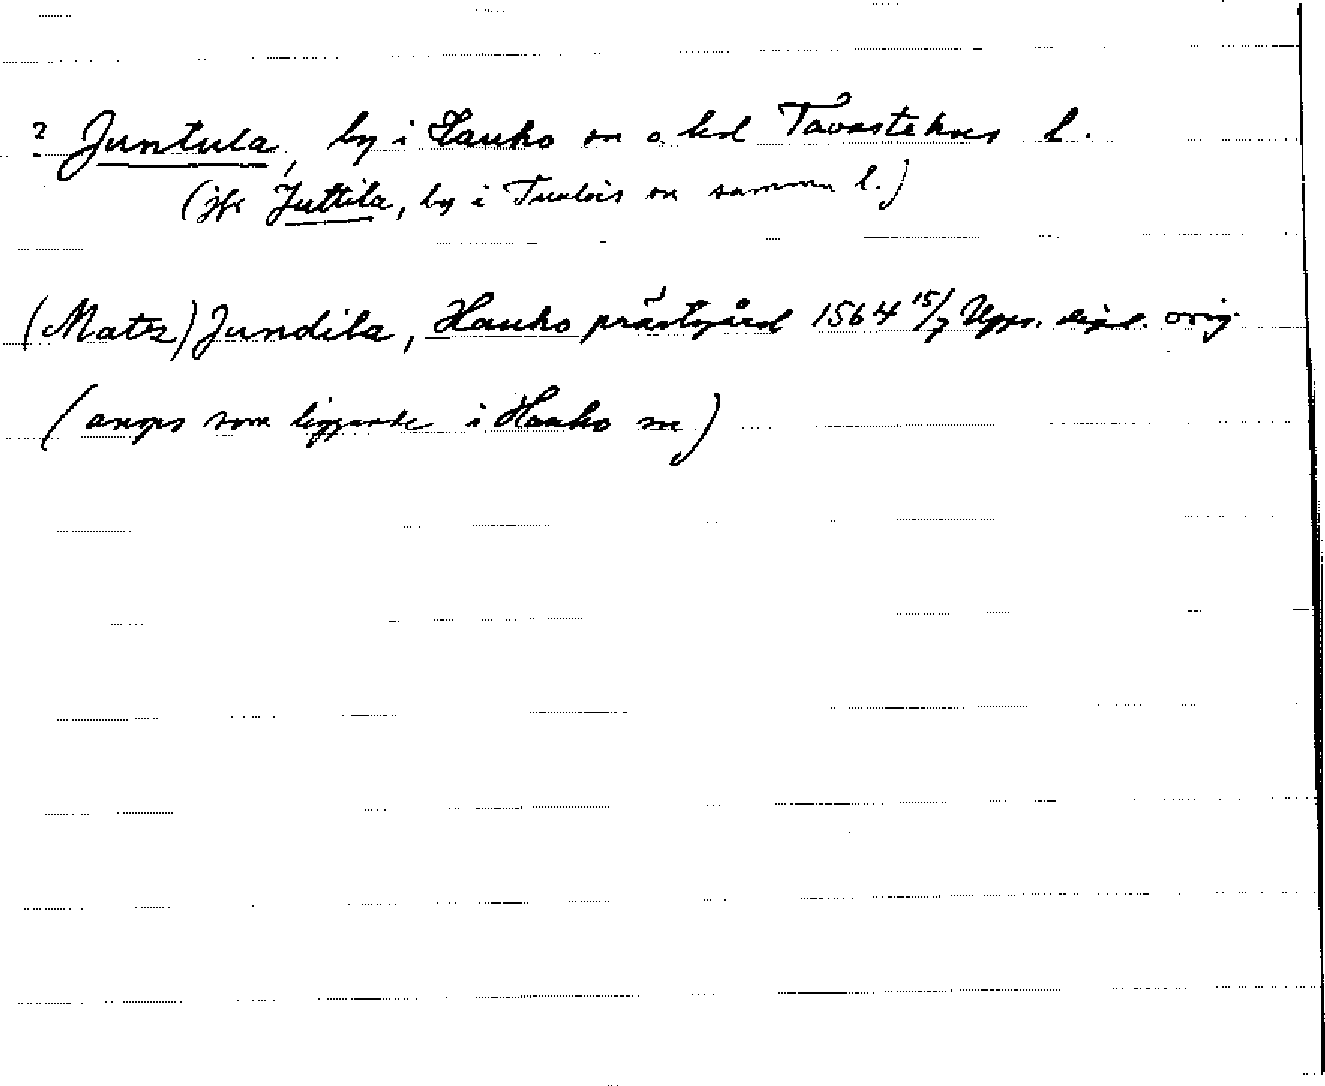 ? Juntula, by i Lauko sn o hd Tavastehus l.
(jfr Juttila, by i Tuulois sn samma l.)
(Matz) Jundila, Hauho prästgård 1564 15/7 Upps. dipl. orig.
(anges som liggande i Hauho sn)